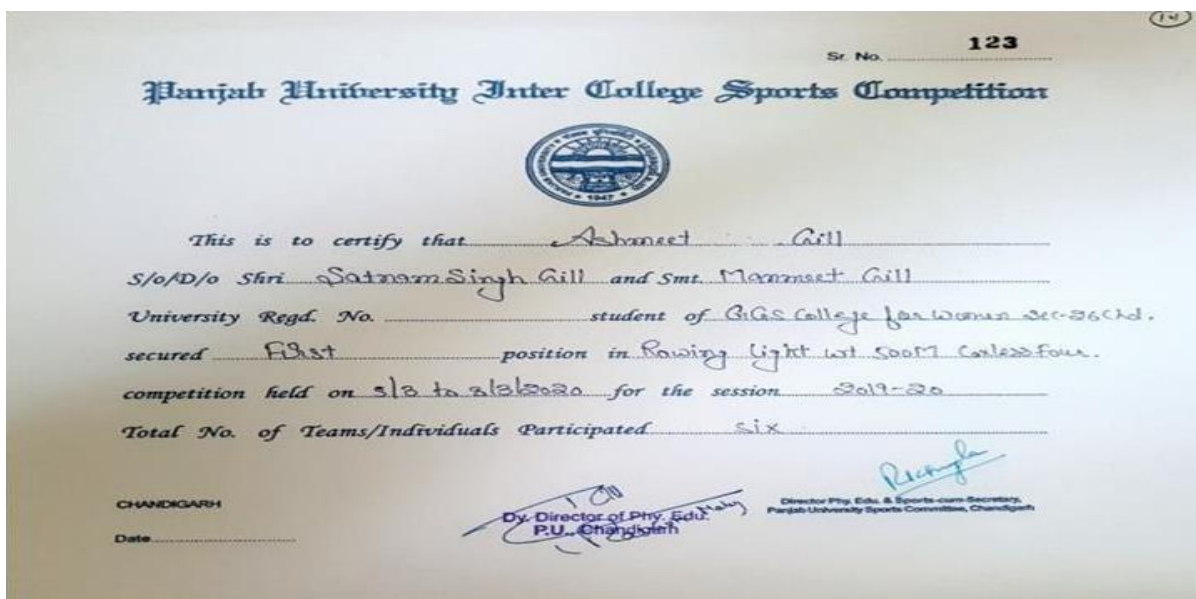 Sr. No. 123
Panjab University Inter College Sports Competition
1947
This is to certify that Ashmeet Gill
S/o/D/o Shri Satnam Singh Gill and Smt. Manmeet Gill
University Regd. No. student of GGS College for Women Sec-26 Chd.
secured First position in Rowing Light wt 500M Coxless Four.
competition held on 5/3 to 8/3/2020 for the session 2019-20
Total No. of Teams/Individuals Participated six
CHANDIGARH
Dy. Director of Phy. Edu.
P.U., Chandigarh
Director Phy. Edu. & Sports-cum-Secretary,
Panjab University Sports Committee, Chandigarh
Date